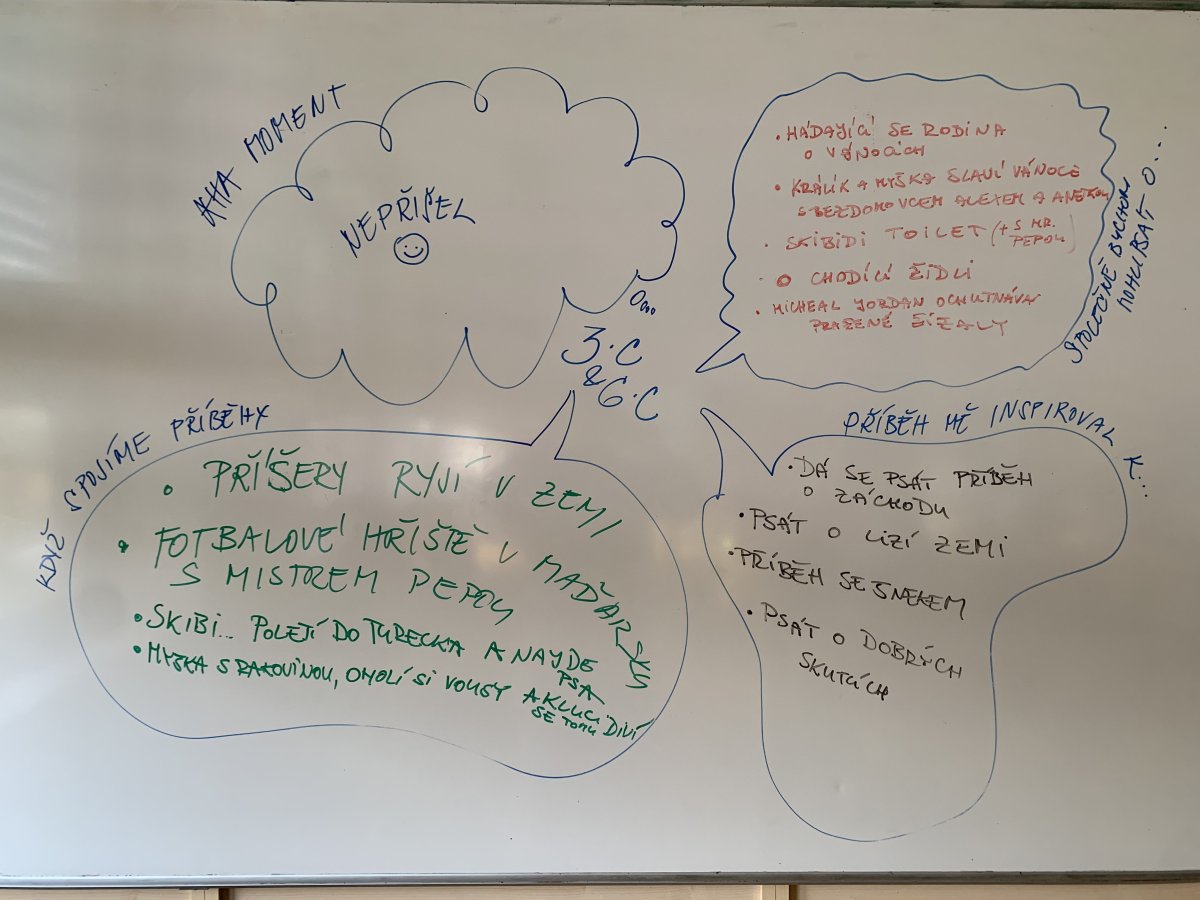 AHA MOMENT
NEPŘIŠEL
3.C
& 6.C
SPOLEČNĚ BYCHOM
MOHLI PSÁT O...
• HÁDAJÍCÍ SE RODINA
O VÁNOCÍCH
• KRÁLÍK A MYŠKA SLAVÍ VÁNOCE
S BEZDOMOVCEM ALEXEM A ANETKOU
• SKIBIDI TOILET (+ S MR.
PEPOU)
• O CHODÍCÍ ŽIDLI
• MICHEAL JORDAN OCHUTNÁVÁ
PRAŽENÉ ŽÍŽALY
KDYŽ SPOJÍME PŘÍBĚHY
• PŘÍŠERY RYJÍ V ZEMI
• FOTBALOVÉ HŘIŠTĚ V MAĎARSKU
S MISTREM PEPOU
• SKIBI... POLETÍ DO TURECKA A NAJDE
PSA
• MYŠKA S RAKOVINOU, OHOLÍ SI VOUSY A KLUCI DIVÍ
SE TOMU
PŘÍBĚH MĚ INSPIROVAL K...
• DÁ SE PSÁT PŘÍBĚH
O ZÁCHODU
• PSÁT O CIZÍ ZEMI
• PŘÍBĚH SE SNEKEM
• PSÁT O DOBRÝCH
SKUTCÍCH